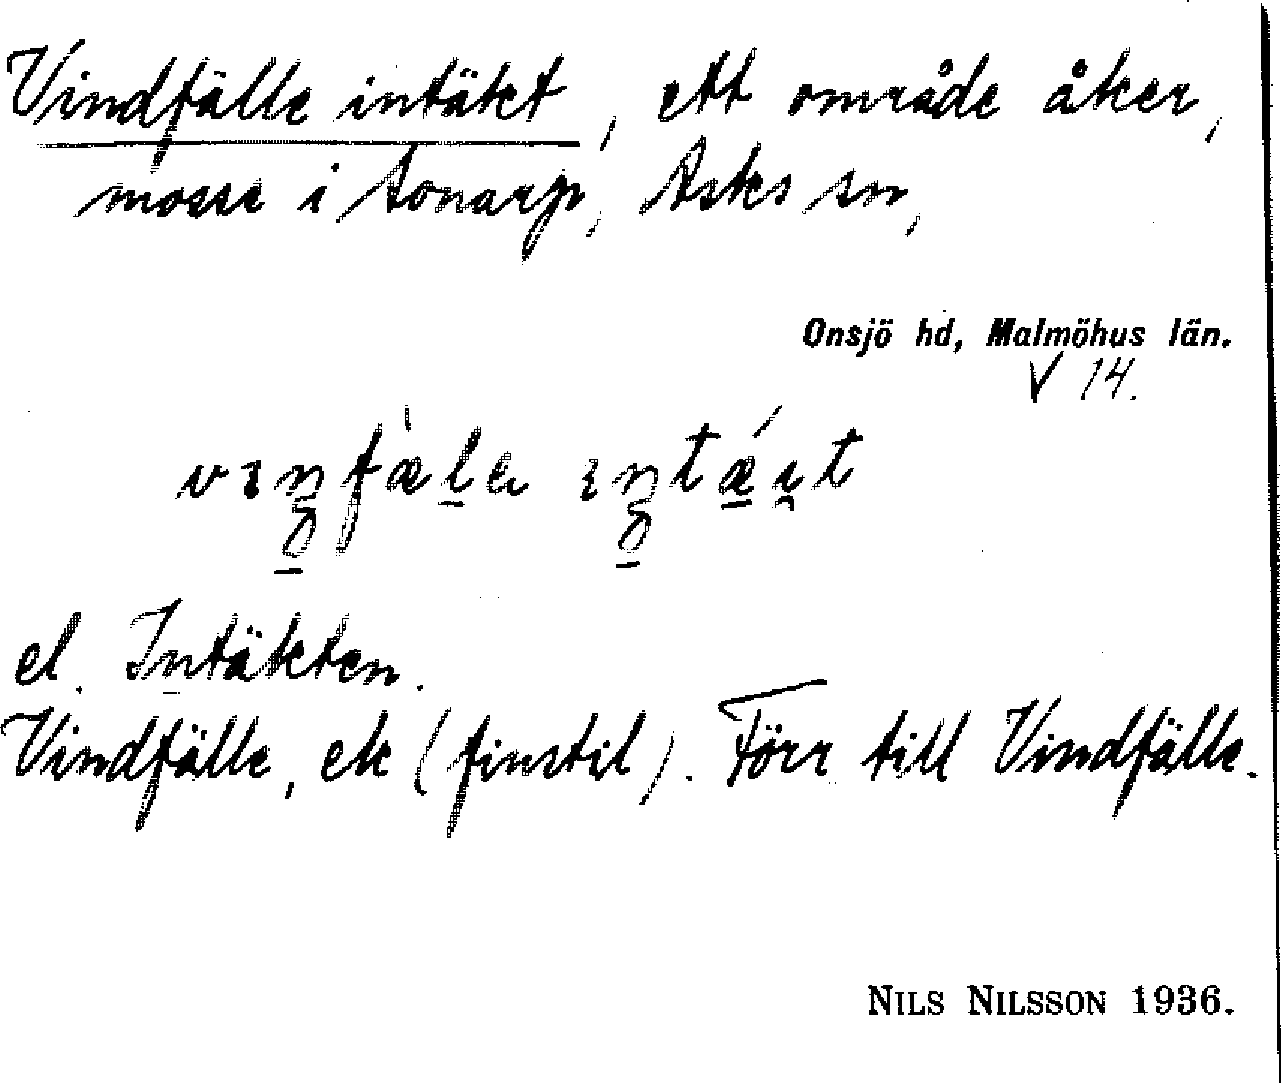 Vindfälle intäkt, ett område åker,
mosse i Aonarp, Asks sn,
Onsjö hd, Malmöhus län.
V 14.
el. Intäkten.
Vindfälle, ek (finstil). Förr till Vindfälle.
NILS NILSSON 1936.